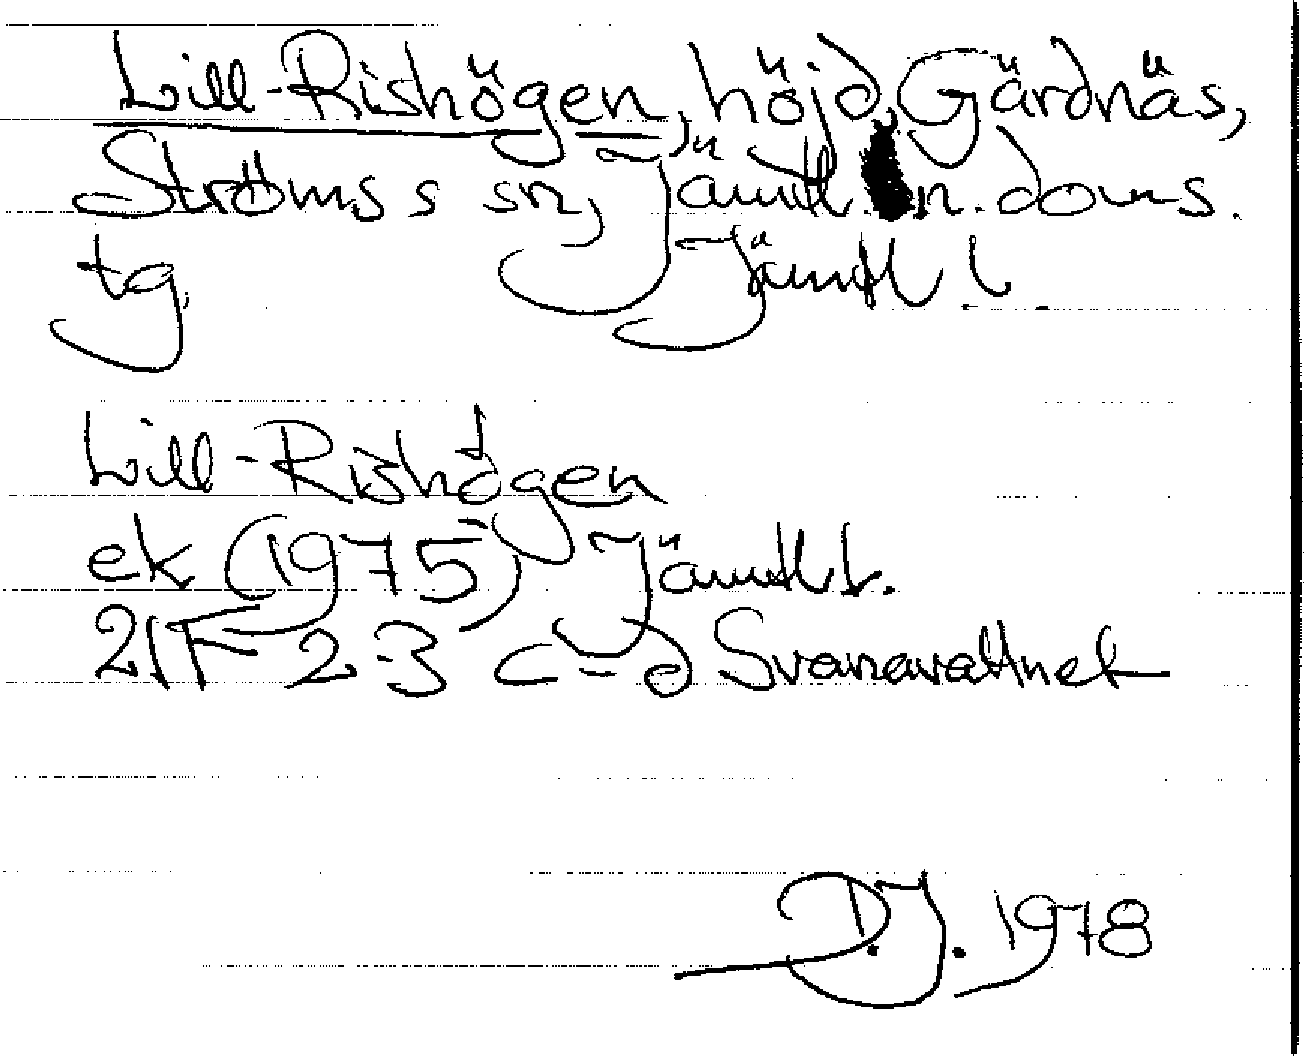 Lill-Rishögen, höjd, Gärdnäs,
Ströms s sn, Jämtl. n. doms.
tg. Jämtl. l.
Lill-Rishögen
ek (1975) Jämtl l.
21F 2-3 c-d Svanavattnet
D.J. 1978